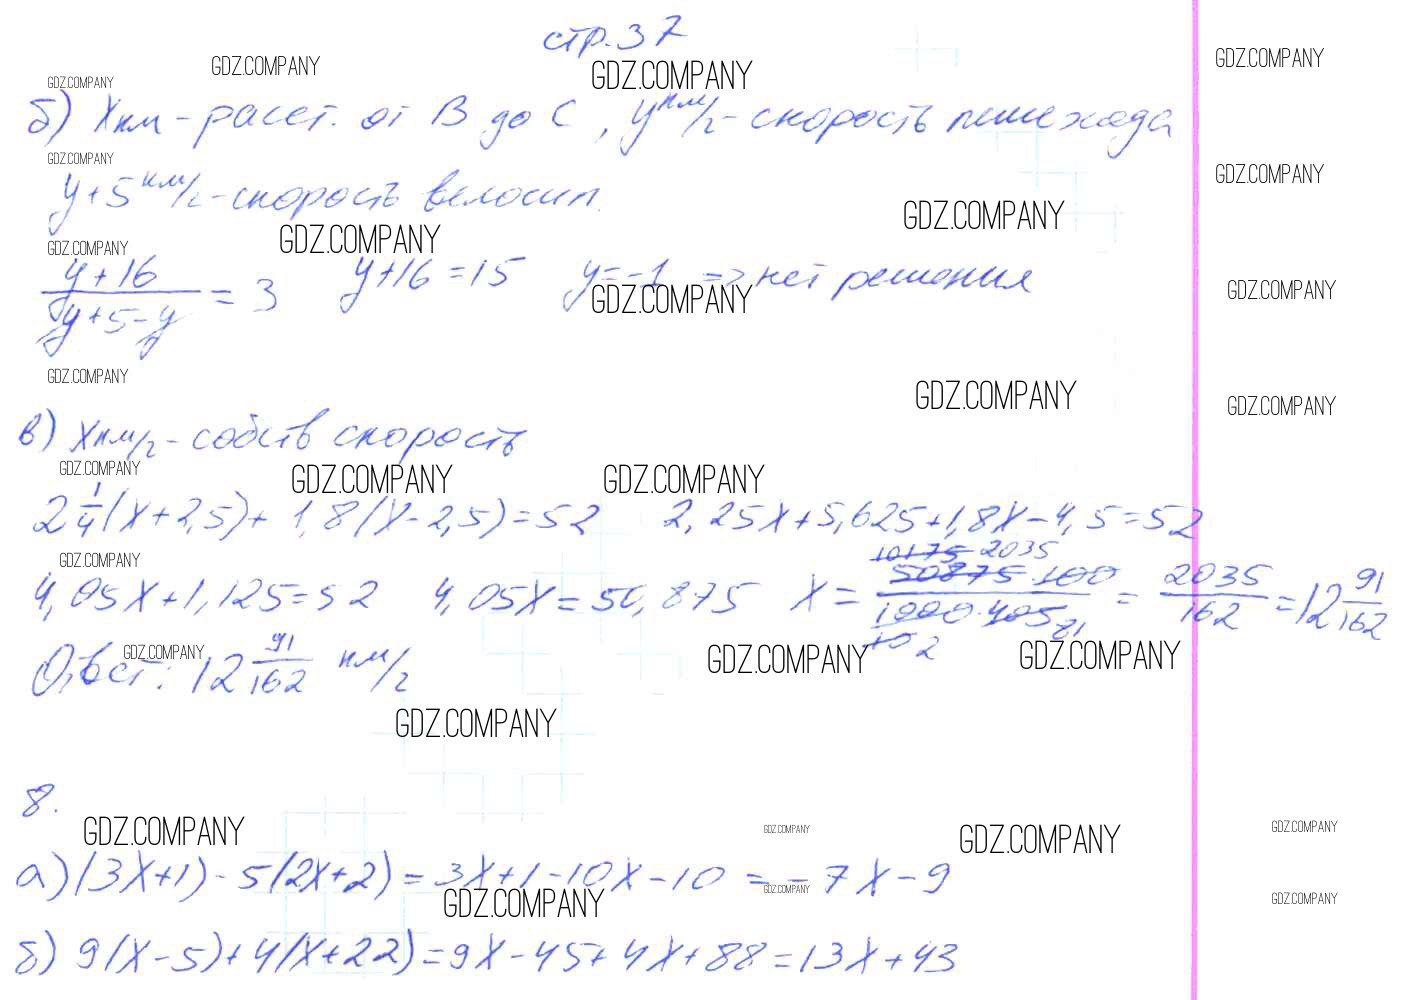 стр. 37
GDZ.COMPANY GDZ.COMPANY GDZ.COMPANY GDZ.COMPANY
б) Xкм - расст. от В до С, y км/г - скорость пешехода
GDZ.COMPANY GDZ.COMPANY
y + 5 км/г - скорость велосип.
GDZ.COMPANY GDZ.COMPANY GDZ.COMPANY
(y + 16)/(y + 5 - y) = 3 y + 16 = 15 y = -1 => нет решения
GDZ.COMPANY GDZ.COMPANY
GDZ.COMPANY GDZ.COMPANY GDZ.COMPANY
в) Xкм/г - собств скорость
GDZ.COMPANY GDZ.COMPANY GDZ.COMPANY
2 1/4 (X + 2,5) + 1,8 (X - 2,5) = 52 2,25X + 5,625 + 1,8X - 4,5 = 52
GDZ.COMPANY
4,05X + 1,125 = 52 4,05X = 50,875 X = (50875 · 100)/(1000 · 405) = 2035/162 = 12 91/162
10175 2035
10 2 81
GDZ.COMPANY GDZ.COMPANY GDZ.COMPANY
Ответ: 12 91/162 км/г
GDZ.COMPANY
8.
GDZ.COMPANY GDZ.COMPANY GDZ.COMPANY GDZ.COMPANY
а) (3X + 1) - 5(2X + 2) = 3X + 1 - 10X - 10 = -7X - 9
GDZ.COMPANY GDZ.COMPANY GDZ.COMPANY
б) 9(X - 5) + 4(X + 22) = 9X - 45 + 4X + 88 = 13X + 43